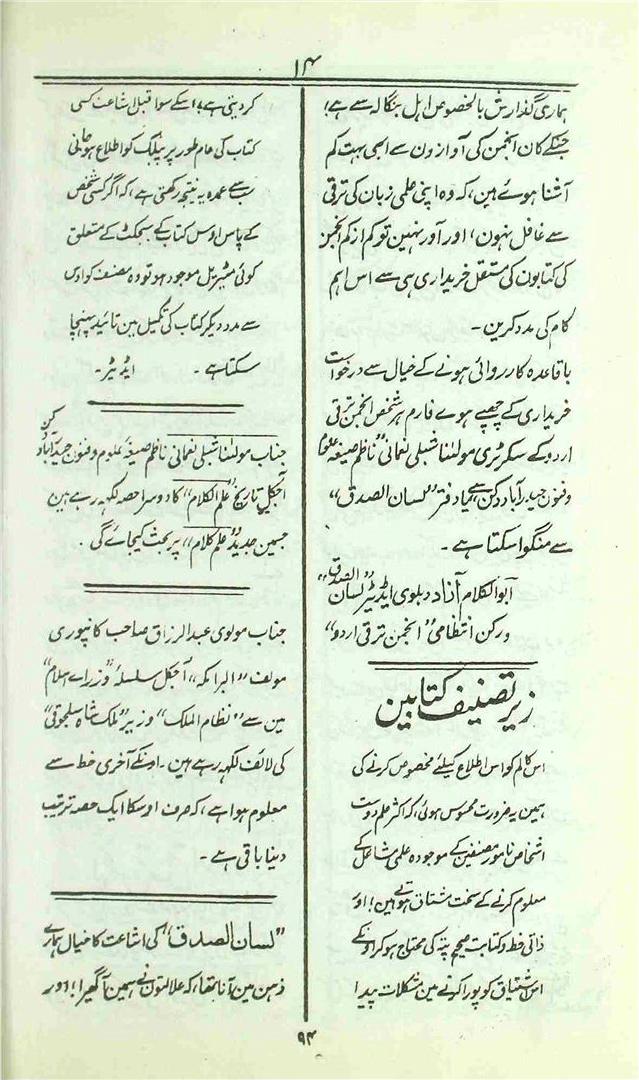 ۱۴
ہماری گذارش بالخصوص اہل بنگالہ سے ہے،
جنکے کان انجمن کی آوازون سے ابھی بہت کم
آشنا ہوئے ہین، کہ وہ اپنی علمی زبان کی ترقی
سے غافل نہون، اور اور نہین تو کم از کم انجمن
کی کتابون کی مستقل خریداری ہی سے اس اہم
کام کی مدد کرین۔
باقاعدہ کارروائی ہونے کے خیال سے درخواست
خریداری کے چھپے ہوے فارم ہر شخص انجمن ترقی
اردو کے سکرٹری مولٰنا شبلی نعمانی ناظم صیغۂ علوم
وفنون حیدرآباد دکن سے یا دفتر "لسان الصدق"
سے منگوا سکتا ہے۔
ابو الکلام آزاد دہلوی ایڈیٹر "لسان الصدق"
ورکن انتظامی "انجمن ترقی اردو"
زیر تصنیف کتابین
اس کالم کو اس اطلاع کیلئے مخصوص کرنے کی
ہمین یہ ضرورت محسوس ہوئی، کہ اکثر علم دوست
اشخاص نامور مصنفین کے موجودہ علمی مشاغل کے
معلوم کرنے کے سخت مشتاق ہوتے ہین، اور
ذاتی خط وکتابت صحیح پتہ کی محتاج ہوکر اونکے
اس اشتیاق کو پورا کرنے مین مشکلات پیدا
کردیتی ہے، اسکے سوا قبل اشاعت کسی
کتاب کی عام طور پر پبلک کو اطلاع ہوجانی
سب سے عمدہ یہ نتیجہ رکھتی ہے، کہ اگر کسی شخص
کے پاس اوس کتاب کے سبجکٹ کے متعلق
کوئی مٹیریل موجود ہو تو وہ مصنف کو اوس
سے مدد دیکر کتاب کی تکمیل مین تائید پہنچا
سکتا ہے۔ ایڈیٹر۔
جناب مولٰنا شبلی نعمانی ناظم صیغۂ علوم وفنون حیدرآباد دکن
آجکل تاریخ "علم الکلام" کا دوسرا حصہ لکھہ رہے ہین
جسمین جدید "علم کلام" پر بحث کیجائے گی۔
جناب مولوی عبدالرزاق صاحب کانپوری
مولف "البرامکہ" آجکل سلسلۂ "وزراے اسلام"
مین سے "نظام الملک" وزیر "ملک شاہ سلجوقی"
کی لائف لکھہ رہے ہین۔ اونکے آخری خط سے
معلوم ہوا ہے، کہ صرف اوسکا ایک حصہ ترتیب
دینا باقی ہے۔
"لسان الصدق" کی اشاعت کا خیال ہمارے
ذہن مین آنا تھا، کہ علالتون نے ہمین آگھیرا، اور
۹۴